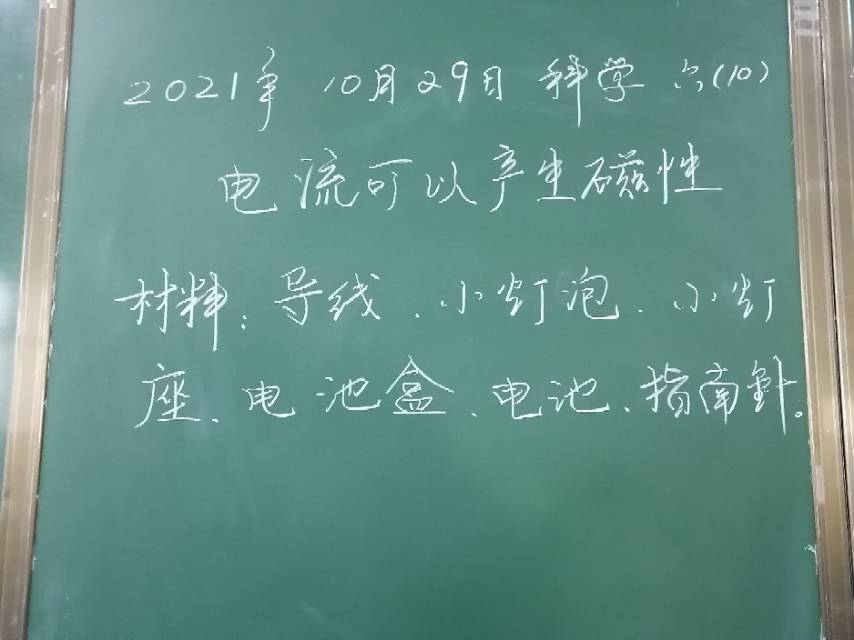 2021年 10月29日 科学 六(10)
电流可以产生磁性
材料:导线、小灯泡、小灯
座、电池盒、电池、指南針。